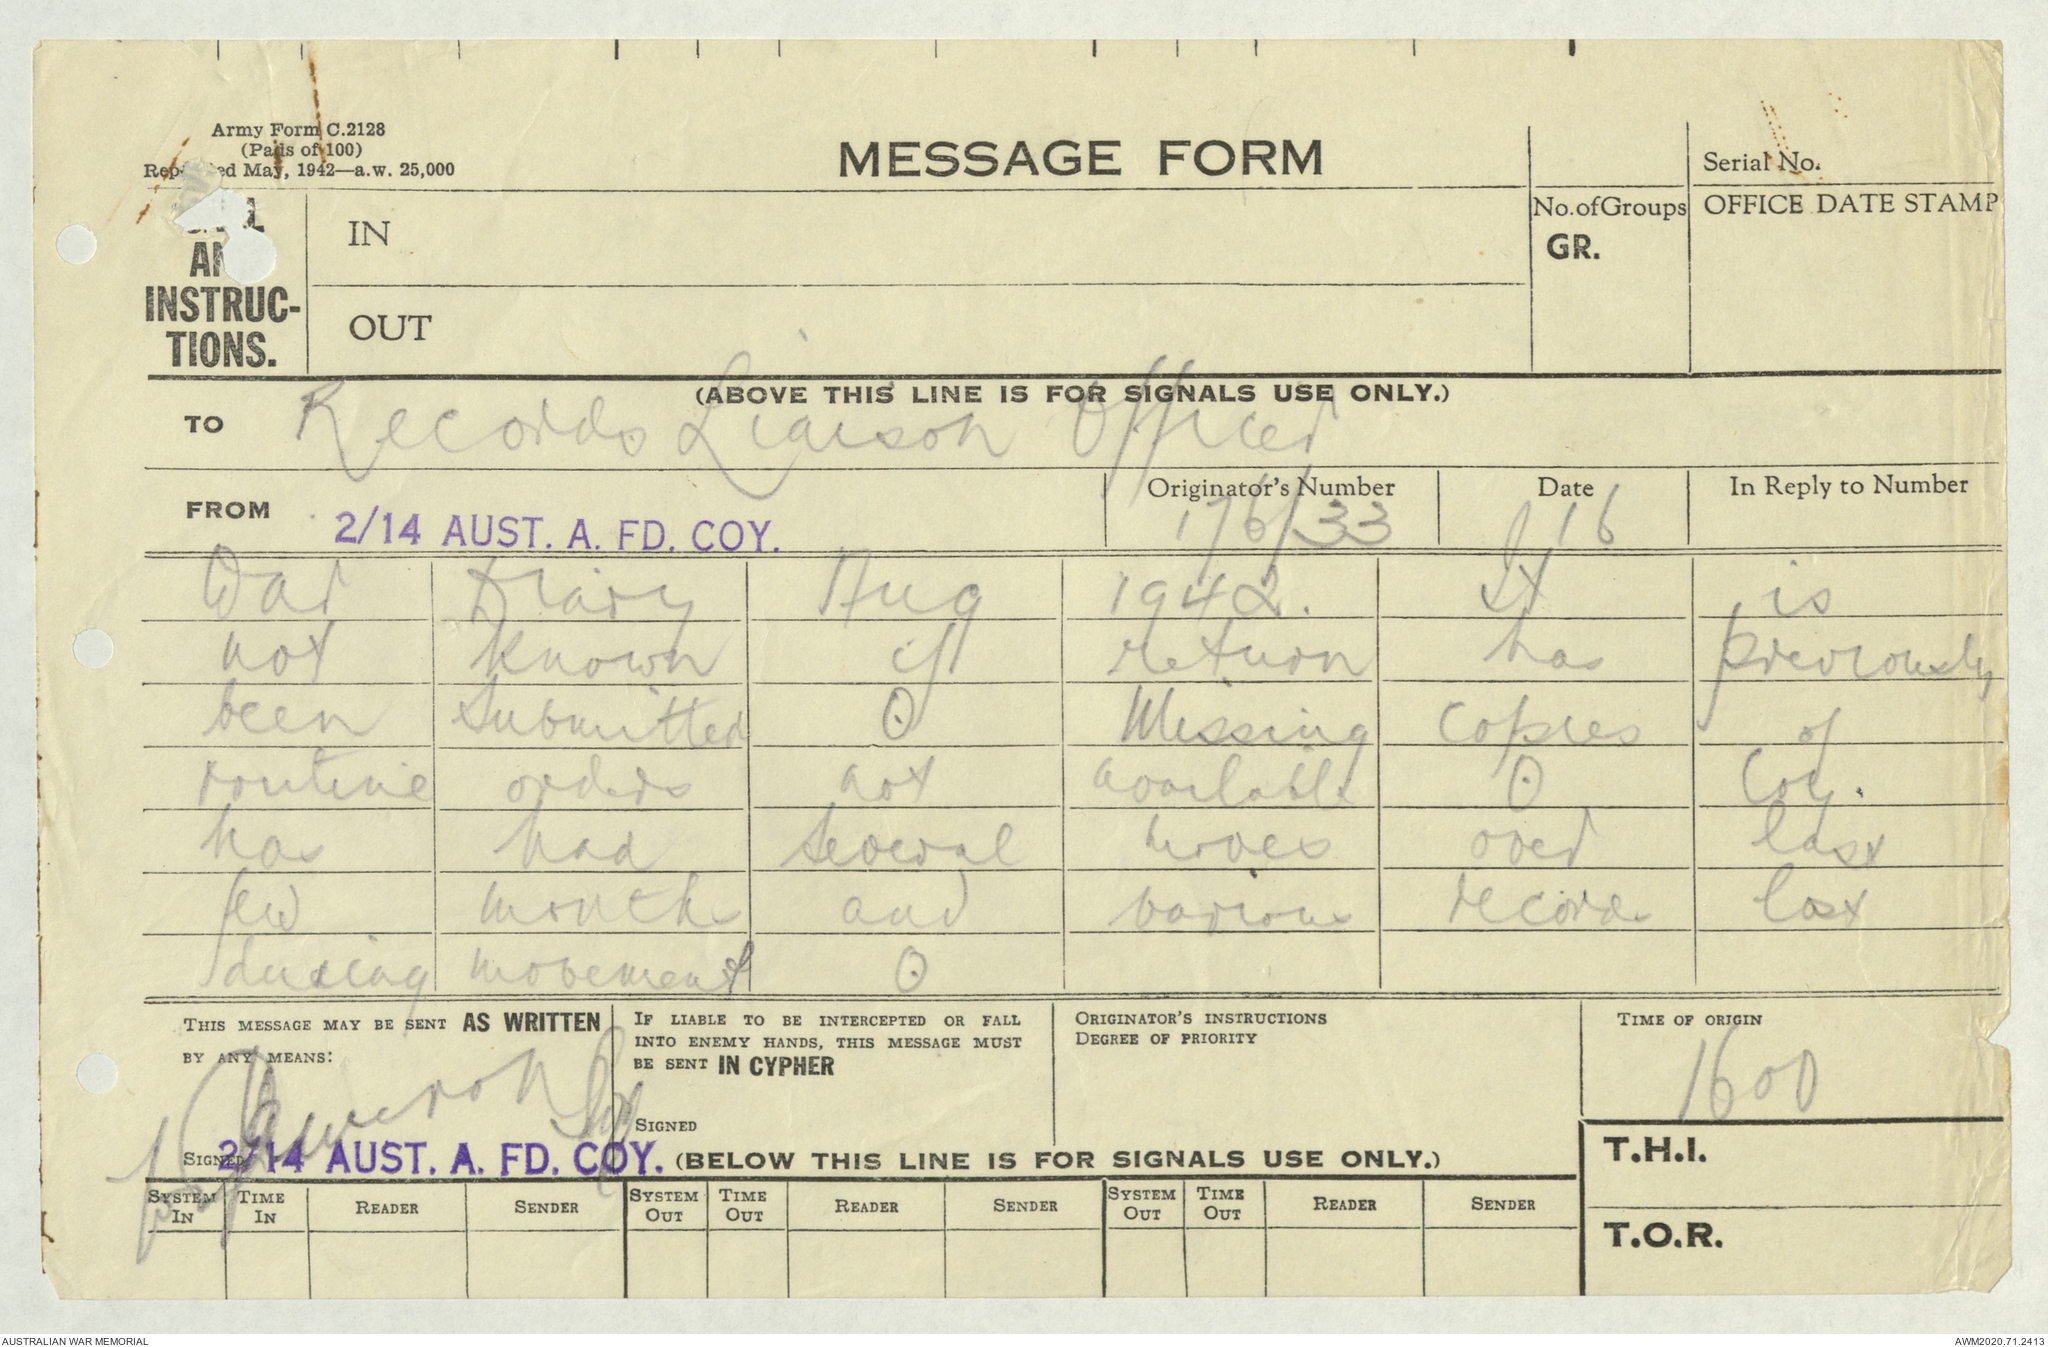 Army Form C.2128
(Pads of 100)
May, 1942—a.w. 25,000
MESSAGE FORM
Serial No.
INSTRUC-
TIONS.
IN
OUT
No. of Groups
GR.
OFFICE DATE STAMP
(ABOVE THIS LINE IS FOR SIGNALS USE ONLY.)
TO Records Liaison Officer
FROM 2/14 AUST. A. FD. COY.
Originator's Number 176/33
Date 16
In Reply to Number
War Diary Aug 1942. It is
not known if return has previously
been submitted O Missing copies of
routine orders not available O Coy.
has had several moves over last
few months and various records lost
during movement O
THIS MESSAGE MAY BE SENT AS WRITTEN
BY ANY MEANS:
SIGNED 2/14 AUST. A. FD. COY.
IF LIABLE TO BE INTERCEPTED OR FALL
INTO ENEMY HANDS, THIS MESSAGE MUST
BE SENT IN CYPHER
SIGNED
ORIGINATOR'S INSTRUCTIONS
DEGREE OF PRIORITY
TIME OF ORIGIN
1600
(BELOW THIS LINE IS FOR SIGNALS USE ONLY.)
T.H.I.
T.O.R.
SYSTEM IN TIME IN READER SENDER SYSTEM OUT TIME OUT READER SENDER SYSTEM OUT TIME OUT READER SENDER
AUSTRALIAN WAR MEMORIAL
AWM2020.71.2413